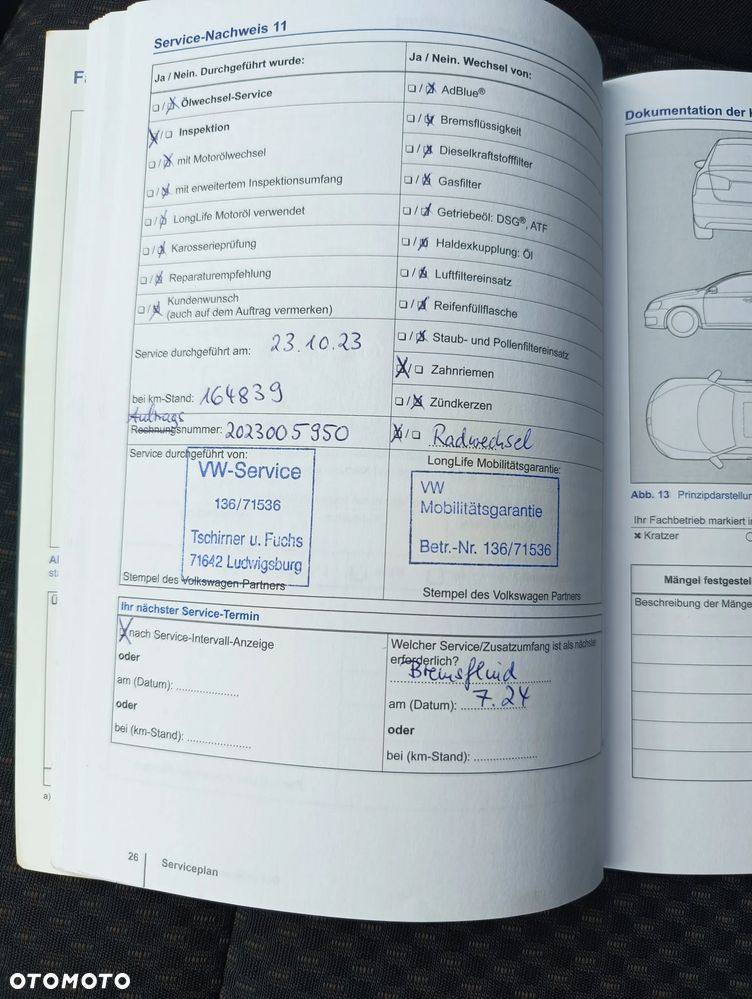 Service-Nachweis 11
Ja / Nein. Durchgeführt wurde:
❏ / ☒ Ölwechsel-Service
☒ / ❏ Inspektion
❏ / ☒ mit Motorölwechsel
❏ / ☒ mit erweitertem Inspektionsumfang
❏ / ☒ LongLife Motoröl verwendet
❏ / ☒ Karosserieprüfung
❏ / ☒ Reparaturempfehlung
❏ / ☒ Kundenwunsch
(auch auf dem Auftrag vermerken)
Service durchgeführt am: 23.10.23
bei km-Stand: 164839
Auftrags
Rechnungsnummer: 2023005950
Service durchgeführt von:
VW-Service
136/71536
Tschirner u. Fuchs
71642 Ludwigsburg
Stempel des Volkswagen Partners
Ja / Nein. Wechsel von:
❏ / ☒ AdBlue®
❏ / ☒ Bremsflüssigkeit
❏ / ☒ Dieselkraftstofffilter
❏ / ☒ Gasfilter
❏ / ☒ Getriebeöl: DSG®, ATF
❏ / ☒ Haldexkupplung: Öl
❏ / ☒ Luftfiltereinsatz
❏ / ☒ Reifenfüllflasche
❏ / ☒ Staub- und Pollenfiltereinsatz
☒ / ❏ Zahnriemen
❏ / ☒ Zündkerzen
☒ / ❏ Radwechsel
LongLife Mobilitätsgarantie:
VW
Mobilitätsgarantie
Betr.-Nr. 136/71536
Stempel des Volkswagen Partners
Ihr nächster Service-Termin
☒ nach Service-Intervall-Anzeige
oder
am (Datum): ....................
oder
bei (km-Stand): ....................
Welcher Service/Zusatzumfang ist als nächstes
erforderlich?
Bremsfluid
am (Datum): 7.24
oder
bei (km-Stand): ....................
26
Serviceplan
a)
Dokumentation der
Abb. 13 Prinzipdarstellu
Ihr Fachbetrieb markiert i
✖ Kratzer
Mängel festgestel
Beschreibung der Mänge
OTOMOTO